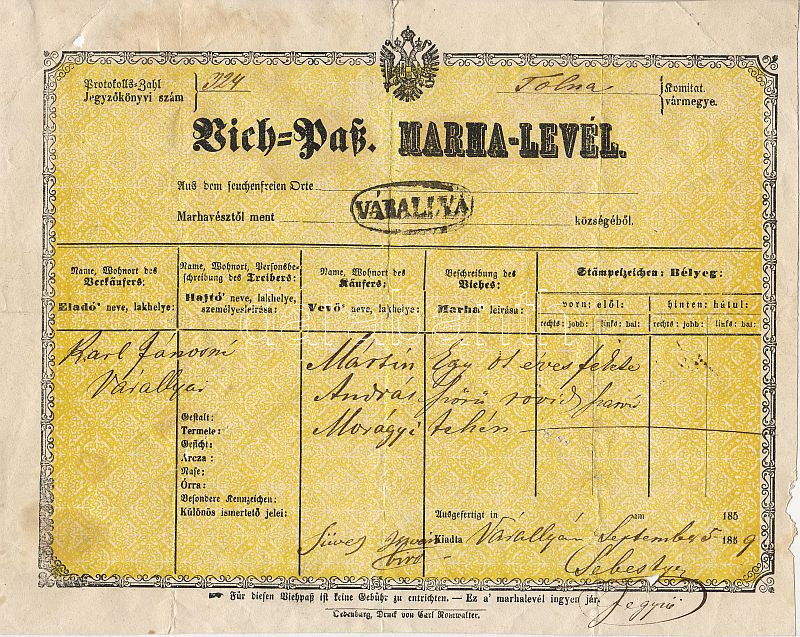 Protokolls=Zahl
Jegyzőkönyvi szám
324
Tolna
Komitat.
vármegye.
Vieh=Paß. MARHA-LEVÉL.
Aus dem seuchenfreien Orte
Marhavésztől ment
VÁRALLYA
községéből.
Name, Wohnort des
Verkäufers:
Eladó' neve, lakhelye:
Name, Wohnort, Personsbe=
schreibung des Treibers:
Hajtó' neve, lakhelye,
személyesleirása:
Name, Wohnort des
Käufers:
Vevő' neve, lakhelye:
Beschreibung des
Viehes:
Marha' leirása:
Stämpelzeichen: Bélyeg:
vorn: elől:
hinten: hátul:
rechts: jobb:
links: bal:
rechts: jobb:
links: bal:
Karl Jánosné
Várallyai
Mártin
András
Morágyi
Egy öt éves fekete
szőrü rovid szarvú
tehén
Gestalt:
Termete:
Gesicht:
Arcza:
Nase:
Órra:
Besondere Kennzeichen:
Különös ismertető jelei:
Süveg István
biró
Ausgefertigt in
am
185
Kiadta Várallyán September 5 1859
Sebestyén
Jegyző
Für diesen Viehpaß ist keine Gebühr zu entrichten. — Ez a' marhalevél ingyen jár.
Oedenburg, Druck von Carl Romwalter.